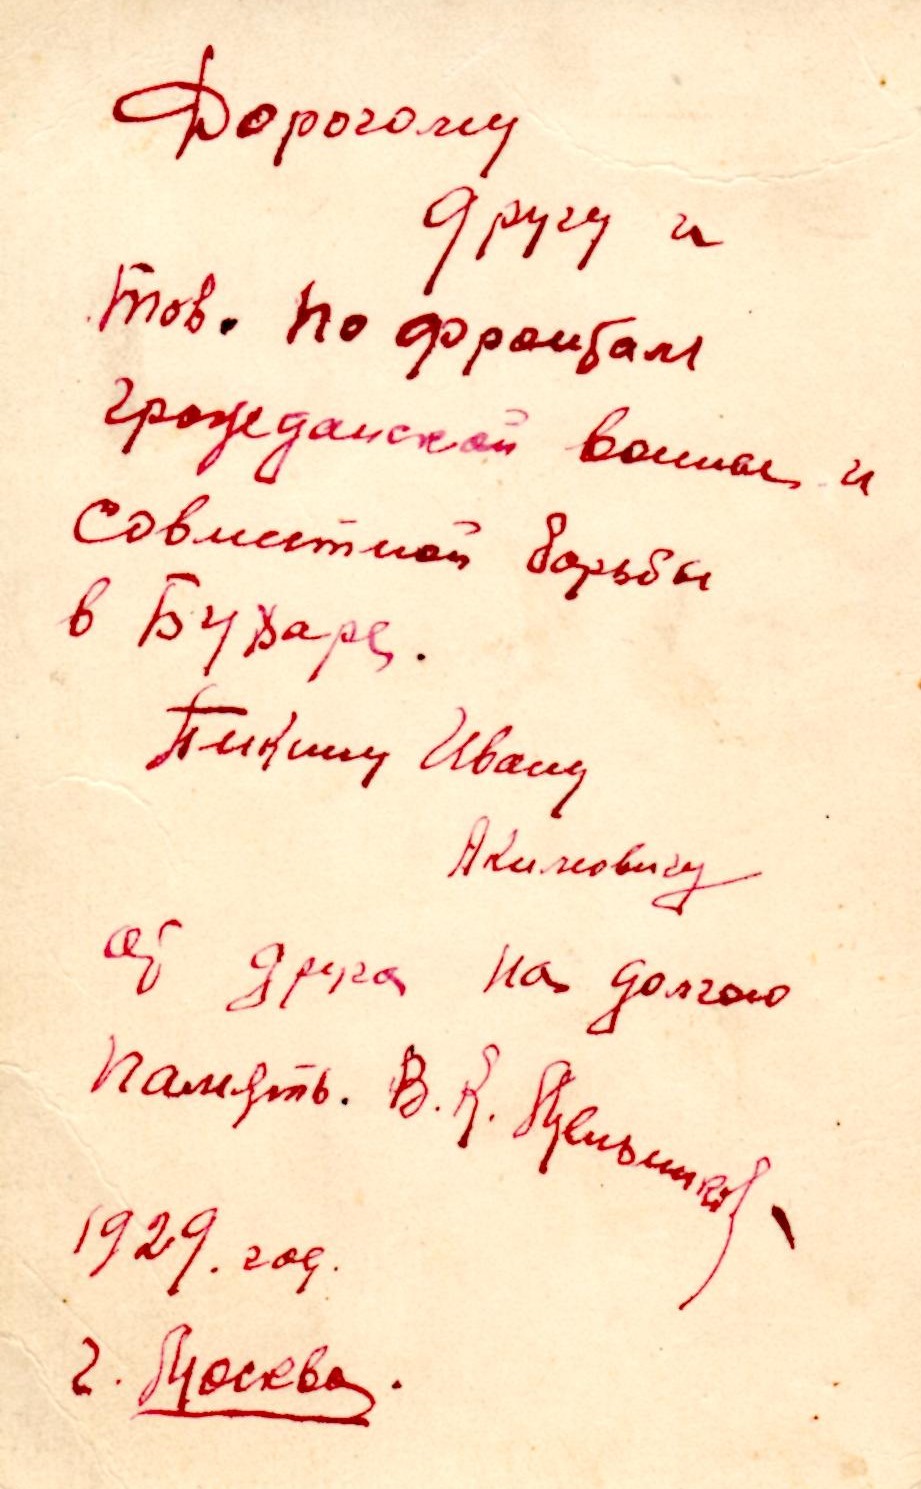 Дорогому
другу и
тов. по фронтам
гражданской воины и
совместной борьбы
в Бухаре.
Пикину Ивану
Акимовичу
от друга на долгою
память. В. К. Мельников
1929. год.
г. Москва.